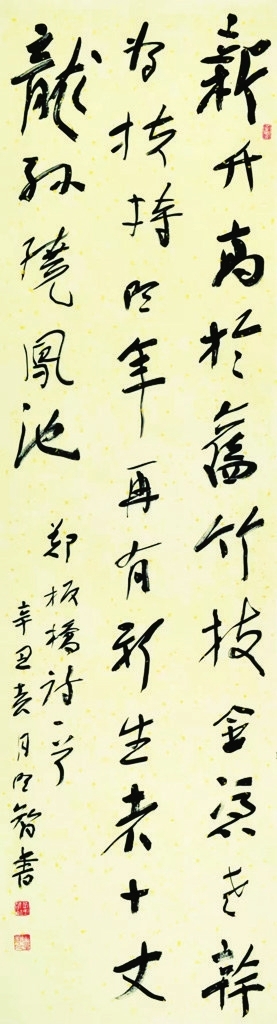 新竹高於舊竹枝全憑老幹
為扶持明年再有新生者十丈
龍孫繞鳳池
鄭板橋詩一首
辛丑月明智書